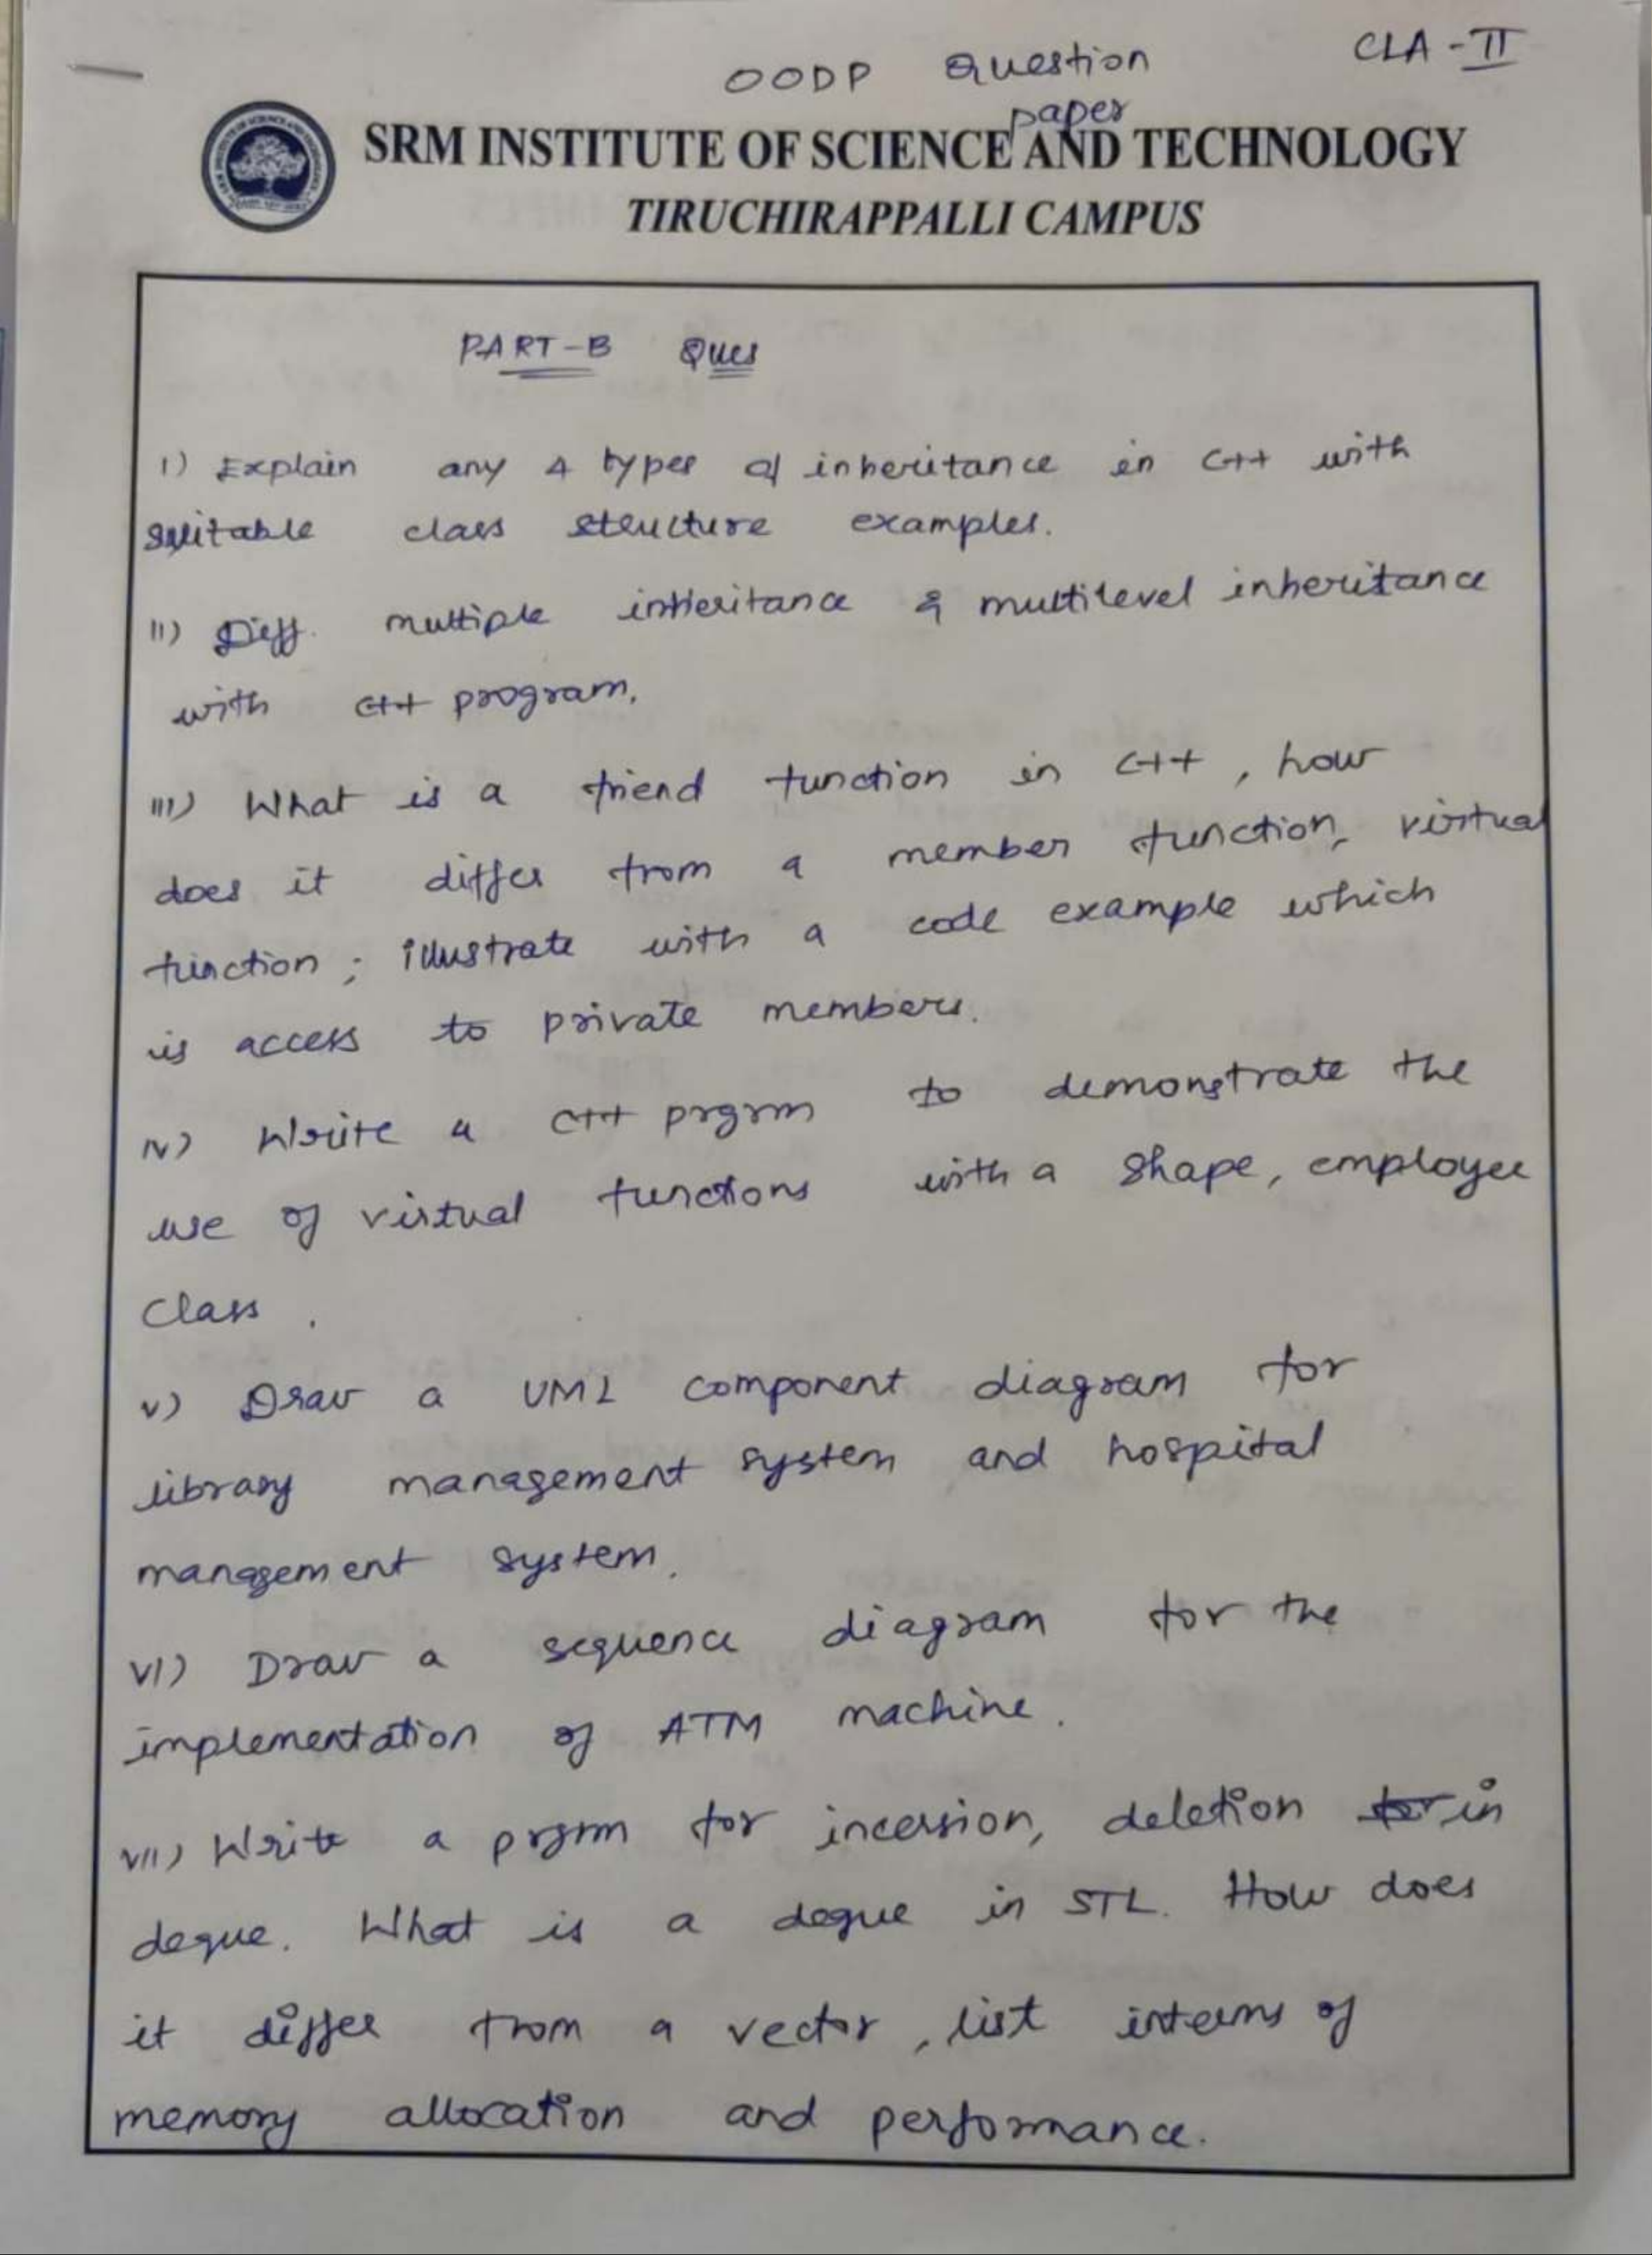 OODP Question CLA - II
paper
SRM INSTITUTE OF SCIENCE AND TECHNOLOGY
TIRUCHIRAPPALLI CAMPUS
PART-B Ques
I) Explain any 4 types of inheritance in C++ with
suitable class structure examples.
II) Diff. multiple inheritance & multilevel inheritance
with C++ program.
III) What is a friend function in C++, how
does it differ from a member function, virtual
function ; illustrate with a code example which
is access to private members.
IV) Write a C++ prgrm to demonstrate the
use of virtual functions with a shape, employee
class.
V) Draw a UML component diagram for
library management system and hospital
management system.
VI) Draw a sequence diagram for the
implementation of ATM machine.
VII) Write a prgrm for incersion, deletion for in
deque. What is a deque in STL. How does
it differ from a vector, list interms of
memory allocation and performance.